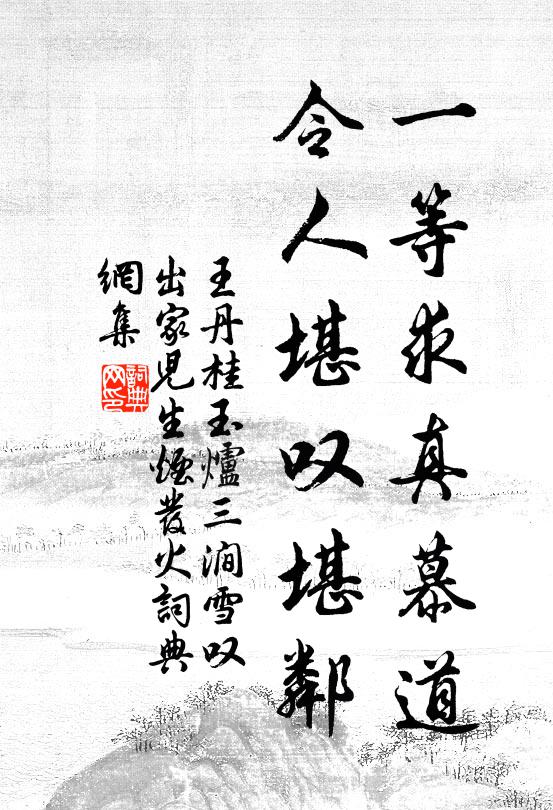 一等求真慕道
令人堪叹堪鄰
王丹桂玉爐三澗雪叹
出家兒生煙發火詞典
網集
詞典
网印